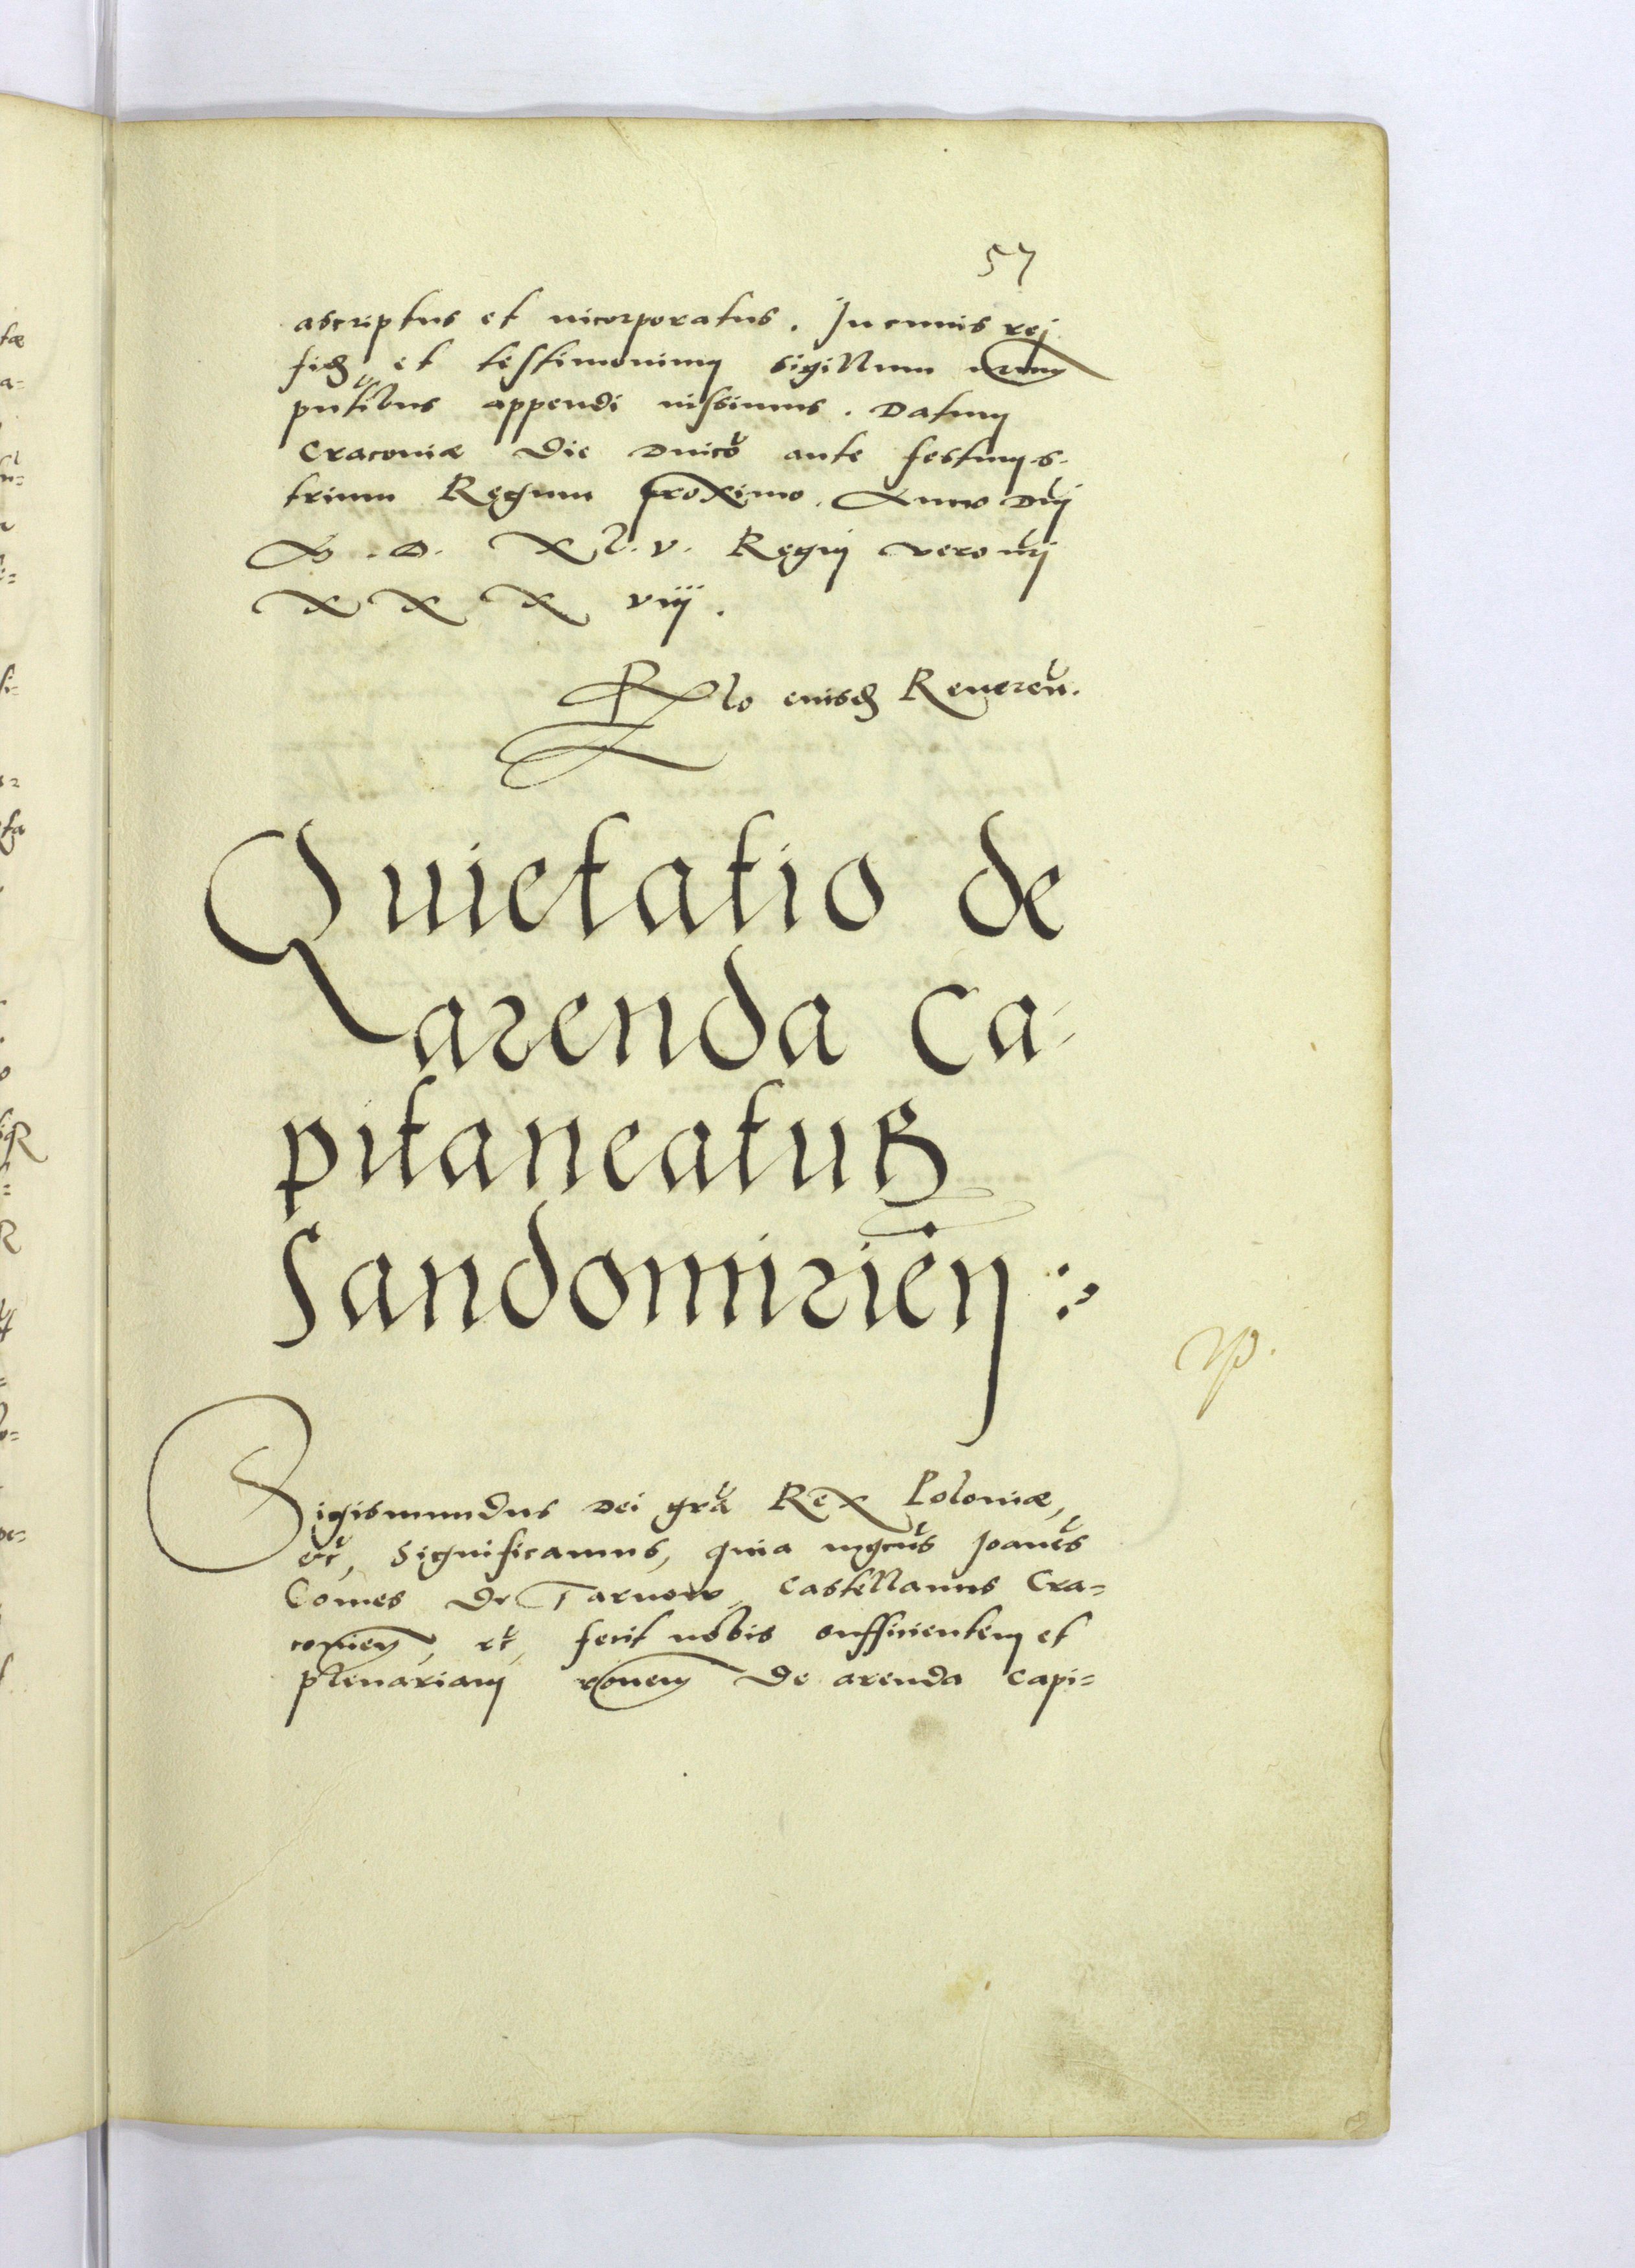 57
ascriptus et incorporatus. In cuius rej
fidẽ, et testimonium sigillum nrum
pñtibus appendi iussimus. Datum
Cracoviæ die Dnico ante festum s.
trium Regum proximo. Anno Dnj
M. D. XL. v. Regnj vero nrj
X X X viij.
Relo eiusdẽ Reveren.
Quietatio de
arenda Ca-
pitaneatus
Sandomirien :
Sigismundus Dei gra Rex Poloniæ,
etc, Significamus, quia mgcus Joanes
Comes de Tarnow, Castellanus Cra=
covien, etc, fecit nobis sufficientem et
plenariam rõnem de arenda Capi=